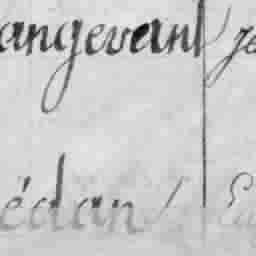 angevant
édan